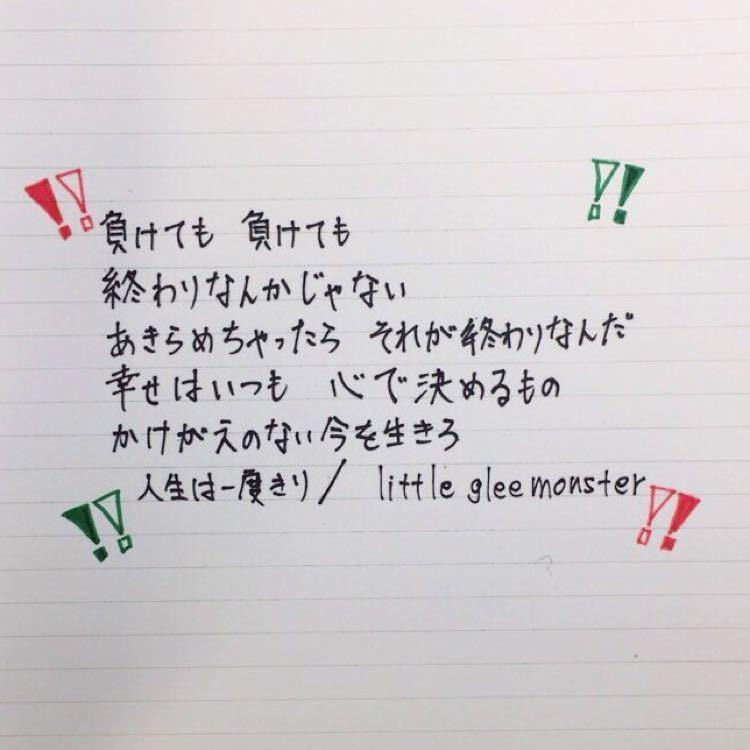 負けても 負けても
終わりなんかじゃない
あきらめちゃったら それが終わりなんだ
幸せはいつも 心で決めるもの
かけがえのない今を生きろ
人生は一度きり/ little glee monster